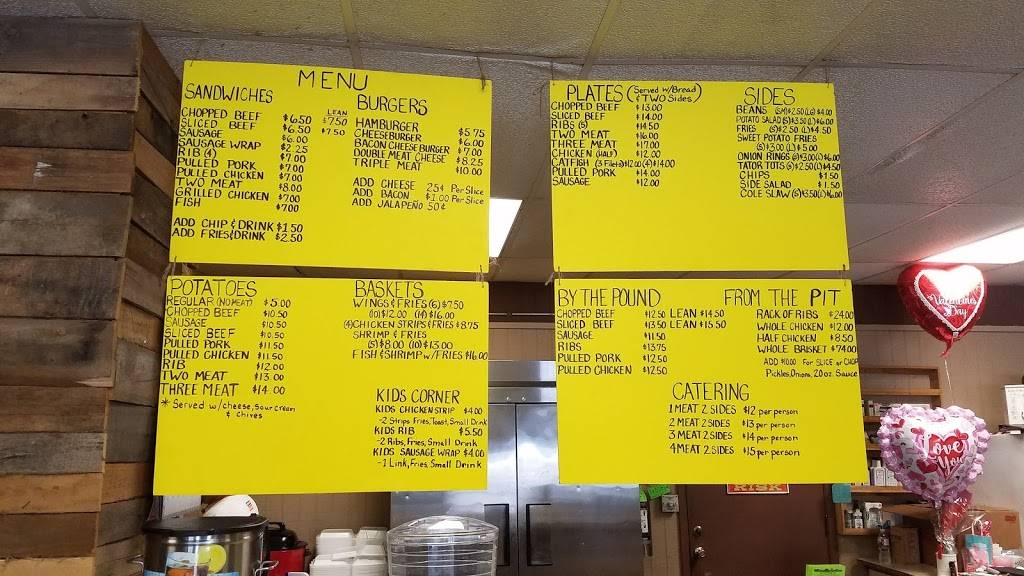 MENU
SANDWICHES
LEAN
CHOPPED BEEF $6.50 $7.50
SLICED BEEF $6.50 $7.50
SAUSAGE $6.00
SAUSAGE WRAP $2.25
RIB (4) $7.00
PULLED PORK $7.00
PULLED CHICKEN $7.00
TWO MEAT $8.00
GRILLED CHICKEN $7.00
FISH $7.00
ADD CHIP & DRINK $1.50
ADD FRIES & DRINK $2.50
BURGERS
HAMBURGER $5.75
CHEESEBURGER $6.00
BACON CHEESE BURGER $7.00
DOUBLE MEAT CHEESE $8.25
TRIPLE MEAT $10.00
ADD CHEESE 25¢ Per Slice
ADD BACON $1.00 Per Slice
ADD JALAPEÑO 50¢
PLATES (Served w/Bread & TWO Sides)
CHOPPED BEEF $13.00
SLICED BEEF $14.00
RIBS (5) $14.50
TWO MEAT $16.00
THREE MEAT $17.00
CHICKEN (HALF) $12.00
CATFISH (3 Filets) $12.00 (4) $14.00
PULLED PORK $14.00
SAUSAGE $12.00
SIDES
BEANS (S) $2.50 (L) $4.00
POTATO SALAD (S) $3.50 (L) $6.00
FRIES (S) $2.50 (L) $4.50
SWEET POTATO FRIES
(S) $3.00 (L) $5.00
ONION RINGS (S) $3.00 (L) $6.00
TATOR TOTS (S) $2.50 (L) $4.50
CHIPS $1.50
SIDE SALAD $1.50
COLE SLAW (S) $3.50 (L) $6.00
POTATOES
REGULAR (NO MEAT) $5.00
CHOPPED BEEF $10.50
SAUSAGE $10.50
SLICED BEEF $10.50
PULLED PORK $11.50
PULLED CHICKEN $11.50
RIB $12.00
TWO MEAT $13.00
THREE MEAT $14.00
* Served w/cheese, Sour Cream & Chives
BASKETS
WINGS & FRIES (6) $7.50
(10) $12.00 (14) $16.00
(4) CHICKEN STRIPS & FRIES $8.75
SHRIMP & FRIES
(5) $8.00 (10) $13.00
FISH & SHRIMP w/ FRIES $16.00
KIDS CORNER
KIDS CHICKEN STRIP $4.00
-2 Strips Fries, Toast, Small Drink
KIDS RIB $5.50
-2 Ribs, Fries, Small Drink
KIDS SAUSAGE WRAP $4.00
-1 Link, Fries Small Drink
BY THE POUND
CHOPPED BEEF $12.50 LEAN $14.50
SLICED BEEF $13.50 LEAN $15.50
SAUSAGE $11.50
RIBS $13.75
PULLED PORK $12.50
PULLED CHICKEN $12.50
FROM THE PIT
RACK OF RIBS $24.00
WHOLE CHICKEN $12.00
HALF CHICKEN $8.50
WHOLE BRISKET $74.00
ADD $10.00 For SLICE w/ CHOP
Pickles, Onions, 20 oz. Sauce
CATERING
1 MEAT 2 SIDES $12 per person
2 MEAT 2 SIDES $13 per person
3 MEAT 2 SIDES $14 per person
4 MEAT 2 SIDES $15 per person
Valentine's Day
Love You